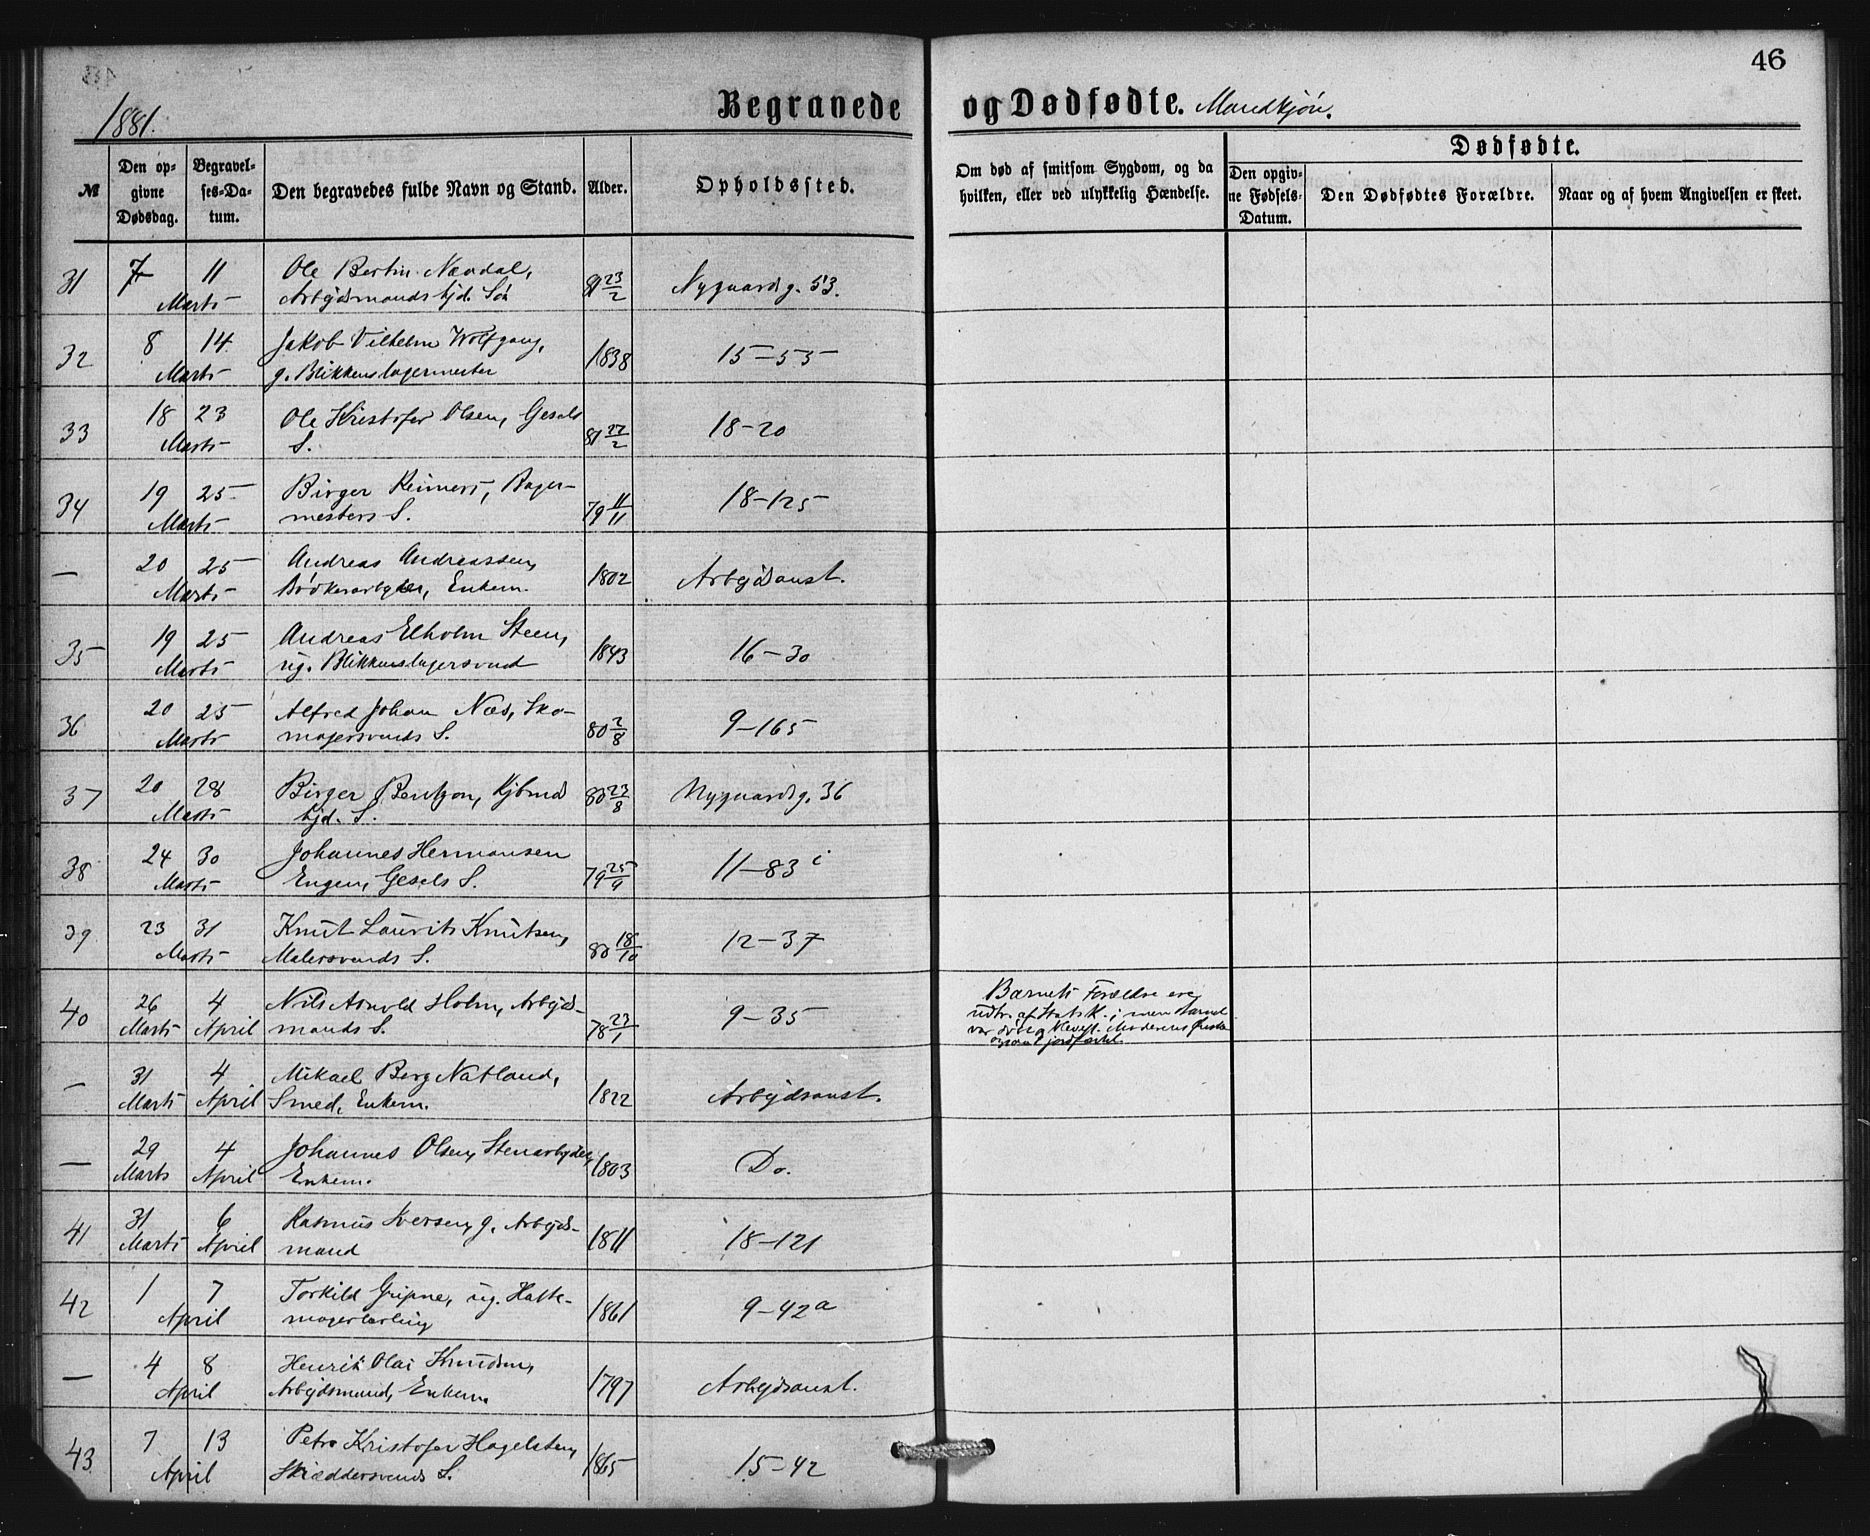 46
1881.
Begravede og Dødfødte. Mandkjøn.
№
Den opgivne Dødsdag.
Begravelses-Datum.
Den begravedes fulde Navn og Stand.
Alder.
Opholdssted.
Om død af smitsom Sygdom, og da hvilken, eller ved ulykkelig Hændelse.
Dødfødte.
Den opgivne Fødsels-Datum.
Den Dødfødtes Forældre.
Naar og af hvem Angivelsen er skeet.
31 7 11 Ole Bertin Nævdal, 81 23/2 Nygaardsg. 53.
Marts Arbejdsmands kjd. Søn
32 8 14 Jakob Vilhelm Wolfgang, 1838 15–55
Marts g. Blikkenslagermester
33 18 23 Ole Kristofer Olsen, Gesels 81 22/2 18–20
Marts S.
34 19 25 Birger Reimers, Bager- 79 11/11 18–125
Marts mesters S.
— 20 25 Andreas Andreassen, 1802 Arbejdsanst.
Marts Bødkerarbyder, Enkem.
35 19 25 Andreas Elholm Steen, 1843 16–30
Marts ug. Blikkenslagersvend
36 20 25 Alfred Johan Næs, Sko- 80 2/8 9–165
Marts magersvends S.
37 20 28 Birger Bentzon, Kjbmds 80 23/8 Nygaardsg. 36
Marts kjd. S.
38 24 30 Johannes Hermansen 79 25/9 11–83 i
Marts Engen, Gesels S.
39 23 31 Knut Laurits Knutsen, 80 18/10 12–37
Marts Malersvends S.
40 26 4 Nils Arnold Holm, Arbejds- 78 23/1 9–35
Marts April mands S.
Barnets Forældre ere
udtr. af Statsk., men Barnet
var døbt
— 31 4 Mikael Berg Natland, 1822 Arbejdsanst.
Marts April Smed, Enkem.
— 29 4 Johannes Olsen, Stenarbyder, 1803 Do.
Marts April Enkem.
41 31 6 Rasmus Iversen, g. Arbejds- 1811 18–121
Marts April mand
42 1 7 Torkild Gripne, ug. Hatte- 1861 9–42a
April magerlærling
— 4 8 Henrik Olai Knudsen, 1797 Arbejdsanst.
April Arbejdsmand, Enkem.
43 7 13 Petr Kristofer Hagelsteen, 1865 15–42
April Skræddersvends S.